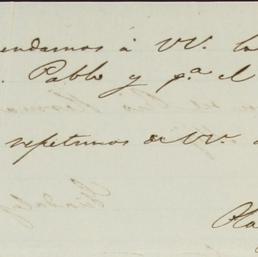 endamos á VV. la
Pablo y p.a el
repetimos de VV.